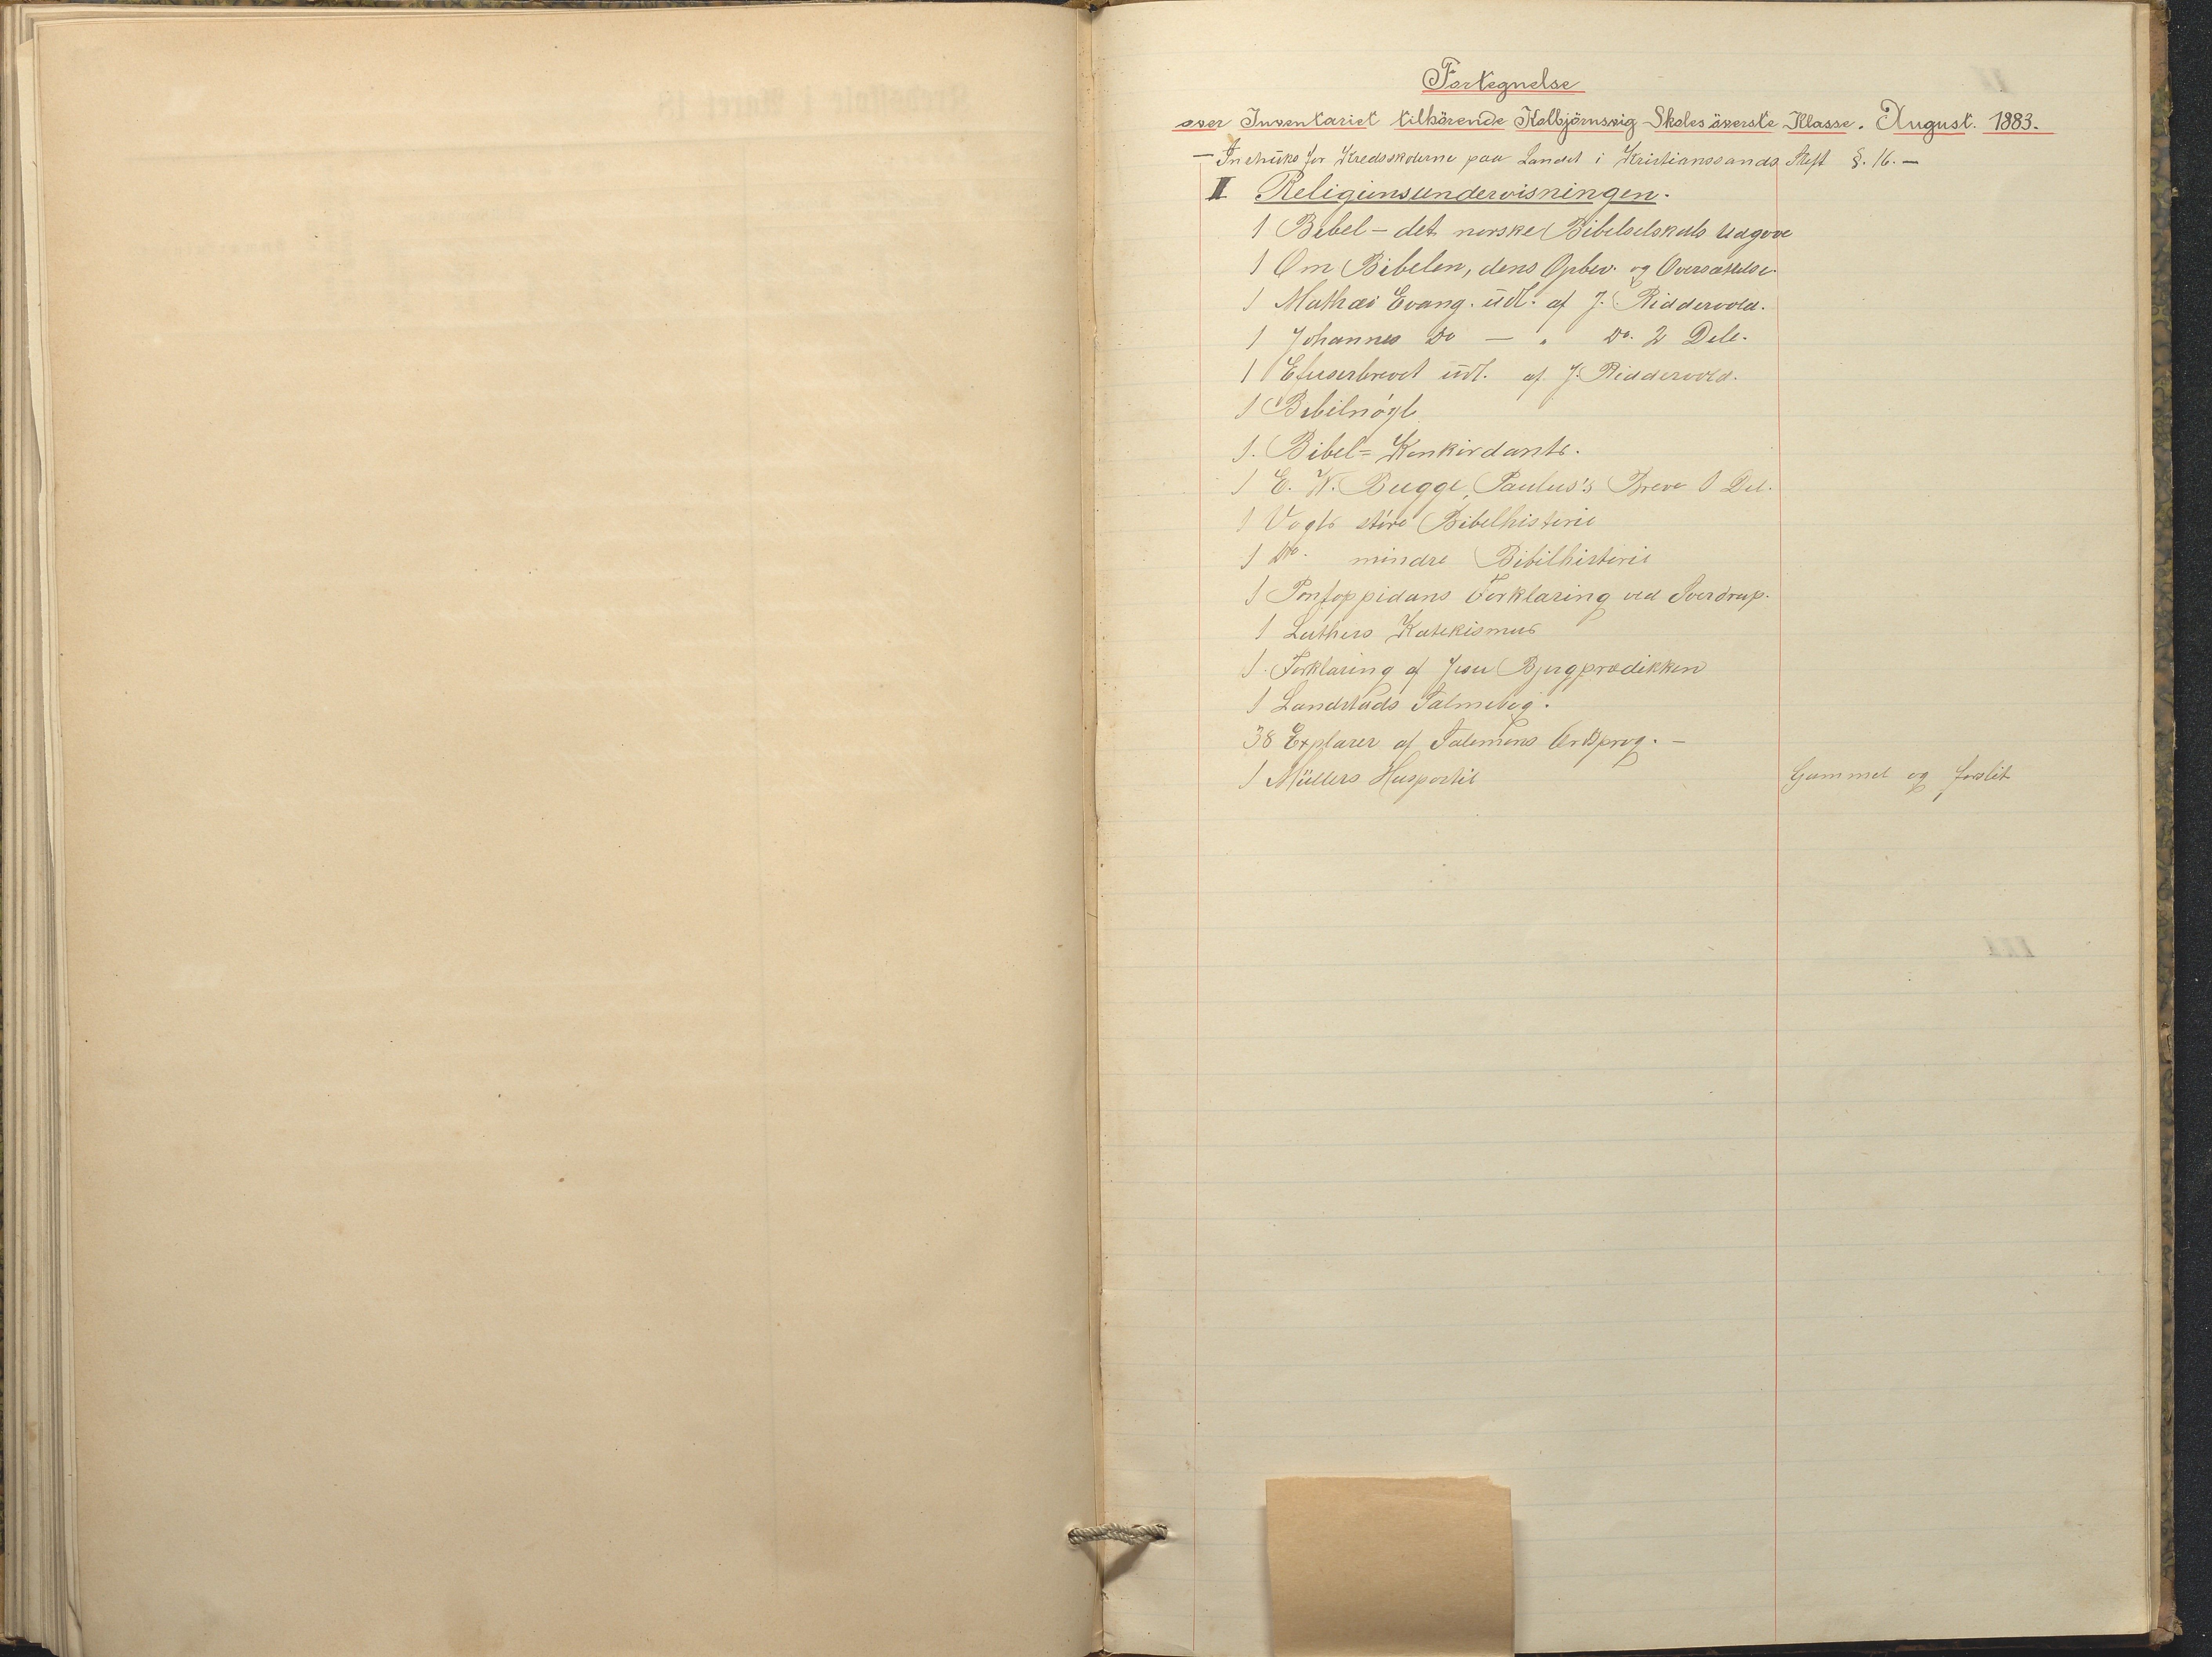 Fortegnelse
over Inventariet tilhörende Kolbjörnsvig Skoles överste Klasse. August. 1883.
— Instruks for Kredsskolerne paa Landet i Kristianssands Stift §. 16. —
I Religionsundervisningen.
1 Bibel – det norske Bibelselskabs Udgave
1 Om Bibelen, dens Opbev. og Oversættelse.
1 Mathæi Evang. udl. af J. Riddervold.
1 Johannes Do — " Do. 2 Dele.
1 Efeserbrevet udl. af J. Riddervold.
1 Bibelnögle
1. Bibel= Konkordants.
1 E. W. Bugge, Paulus's Breve 1 Del.
1 Vogts störe Bibelhistorie
1 Do. mindre Bibelhistorie
1 Pontoppidans Forklaring ved Sverdrup.
1 Luthers Katekismus
1. Forklaring af Jesu Bjergprædikken
1 Landstads Salmebog.
38 Explarer af Salomons Ordsprog. –
1 Müllers Huspostil Gammel og forslit